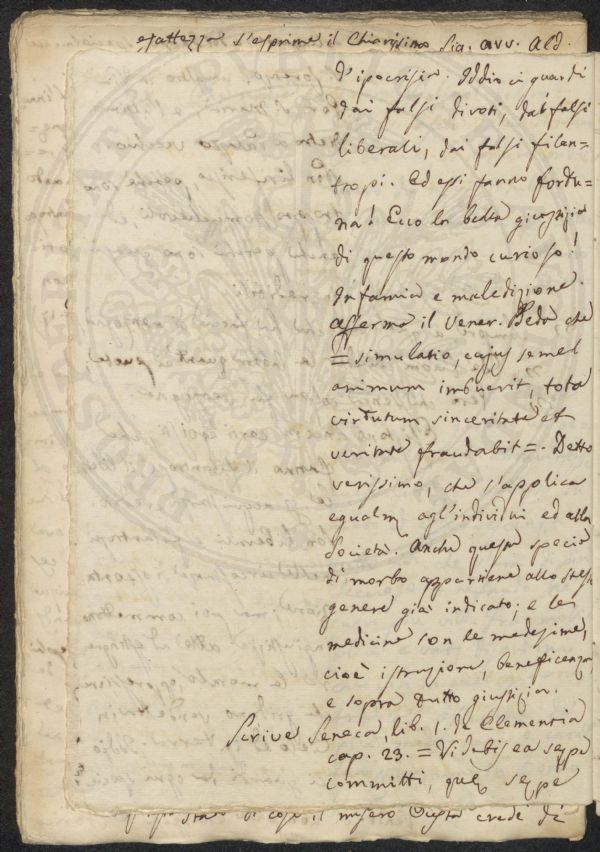 esattezza s'esprime il Chiarissimo Sig. avv. Ald.
d'ipocrisia. Iddio ci guardi
dai falsi divoti, dai falsi
liberali, dai falsi filan=
tropi. Ed essi fanno fortu=
na! Ecco la bella giustizia
di questo mondo curioso!
Infamia e maledizione.
afferma il Vener. Beda che
= simulatio, cujus semel
animum imbuerit, tota
virtutum sinceritate et
veritate fraudabit =. Detto
verissimo, che s'applica
egualm agl'individui ed alla
Società. Anche questa specie
di morbo appartiene allo stesso
genere già indicato; e le
medicine son le medesime,
cioè istruzione, beneficenza,
e sopra tutto giustizia.
Scrive Seneca, lib. 1. de Clementia
cap. 23. = Videbis ea sepe
committi, que sepe
di cose il misero crede di